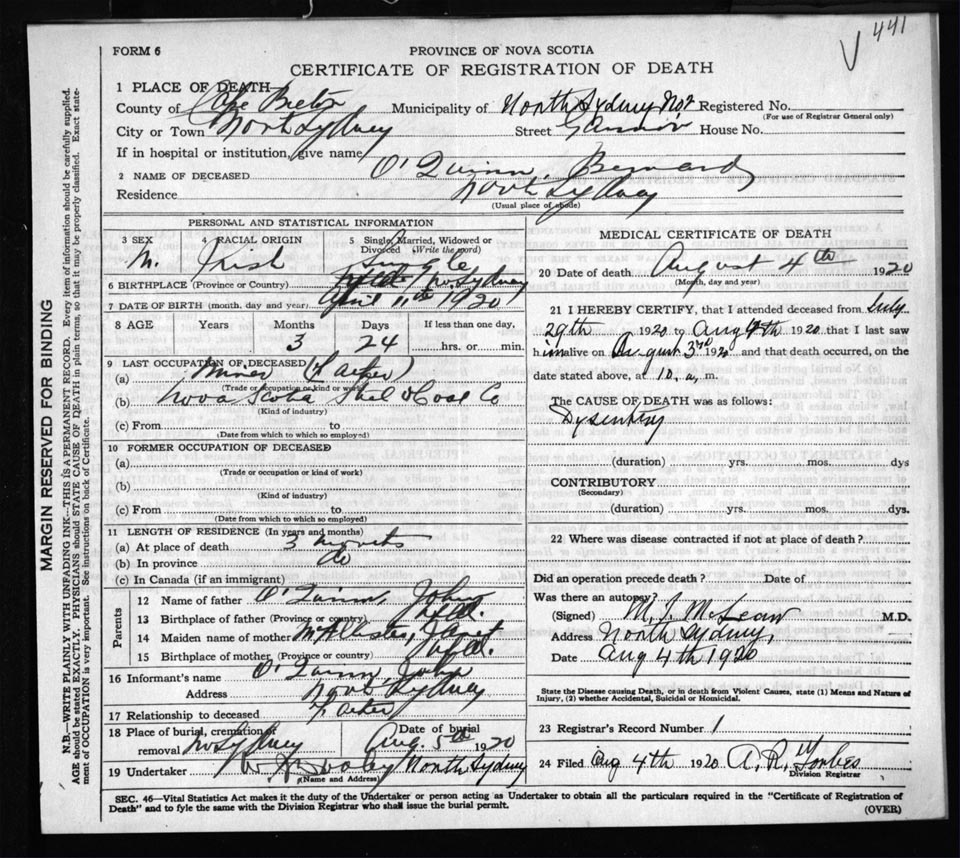 441
FORM 6
PROVINCE OF NOVA SCOTIA
CERTIFICATE OF REGISTRATION OF DEATH
1 PLACE OF DEATH
County of Cape Breton Municipality of North Sydney Registered No.
(For use of Registrar General only)
City or Town North Sydney Street House No.
If in hospital or institution, give name
2 NAME OF DECEASED O'Quinn, Bernard
Residence North Sydney
(Usual place of abode)
PERSONAL AND STATISTICAL INFORMATION
3 SEX 4 RACIAL ORIGIN 5 Single, Married, Widowed or Divorced (Write the word)
M. Irish Single
6 BIRTHPLACE (Province or Country) No. Sydney
7 DATE OF BIRTH (month, day and year) April 11th 1920
8 AGE Years Months Days If less than one day,
3 24 hrs. or min.
9 LAST OCCUPATION OF DECEASED
(a) Miner (Father)
(Trade or occupation or kind of work)
(b) Nova Scotia Steel & Coal Co
(Kind of industry)
(c) From to
(Date from which to which so employed)
10 FORMER OCCUPATION OF DECEASED
(a)
(Trade or occupation or kind of work)
(b)
(Kind of industry)
(c) From to
(Date from which to which so employed)
11 LENGTH OF RESIDENCE (In years and months)
(a) At place of death 3 months
(b) In province do
(c) In Canada (if an immigrant)
Parents
12 Name of father O'Quinn, John
13 Birthplace of father (Province or country) Nfld.
14 Maiden name of mother Janet
15 Birthplace of mother (Province or country) Nfld.
16 Informant's name O'Quinn, John
Address North Sydney
17 Relationship to deceased Father
18 Place of burial, cremation or removal No. Sydney Date of burial Aug. 5th 1920
19 Undertaker North Sydney
(Name and Address)
MEDICAL CERTIFICATE OF DEATH
20 Date of death August 4th 1920
(Month, day and year)
21 I HEREBY CERTIFY, that I attended deceased from July
29th 1920 to Aug 4th 1920 that I last saw
him alive on August 3rd 1920 and that death occurred, on the
date stated above, at 10. a. m.
The CAUSE OF DEATH was as follows:
Dysentery
(duration) yrs. mos. dys
CONTRIBUTORY
(Secondary)
(duration) yrs. mos. dys.
22 Where was disease contracted if not at place of death?
Did an operation precede death? Date of
Was there an autopsy?
(Signed) M. J. McLean M.D.
Address North Sydney,
Date Aug 4th 1920
State the Disease causing Death, or in death from Violent Causes, state (1) Means and Nature of
Injury, (2) whether Accidental, Suicidal or Homicidal.
23 Registrar's Record Number 1
24 Filed Aug 4th 1920 A. R. Forbes
Division Registrar
SEC. 46—Vital Statistics Act makes it the duty of the Undertaker or person acting as Undertaker to obtain all the particulars required in the "Certificate of Registration of
Death" and to fyle the same with the Division Registrar who shall issue the burial permit.
(OVER)
MARGIN RESERVED FOR BINDING
N.B.—WRITE PLAINLY WITH UNFADING INK—THIS IS A PERMANENT RECORD. Every item of information should be carefully supplied.
AGE should be stated EXACTLY. PHYSICIANS should STATE CAUSE OF DEATH in plain terms, so that it may be properly classified. Exact statement of OCCUPATION is very important. See instructions on back of Certificate.